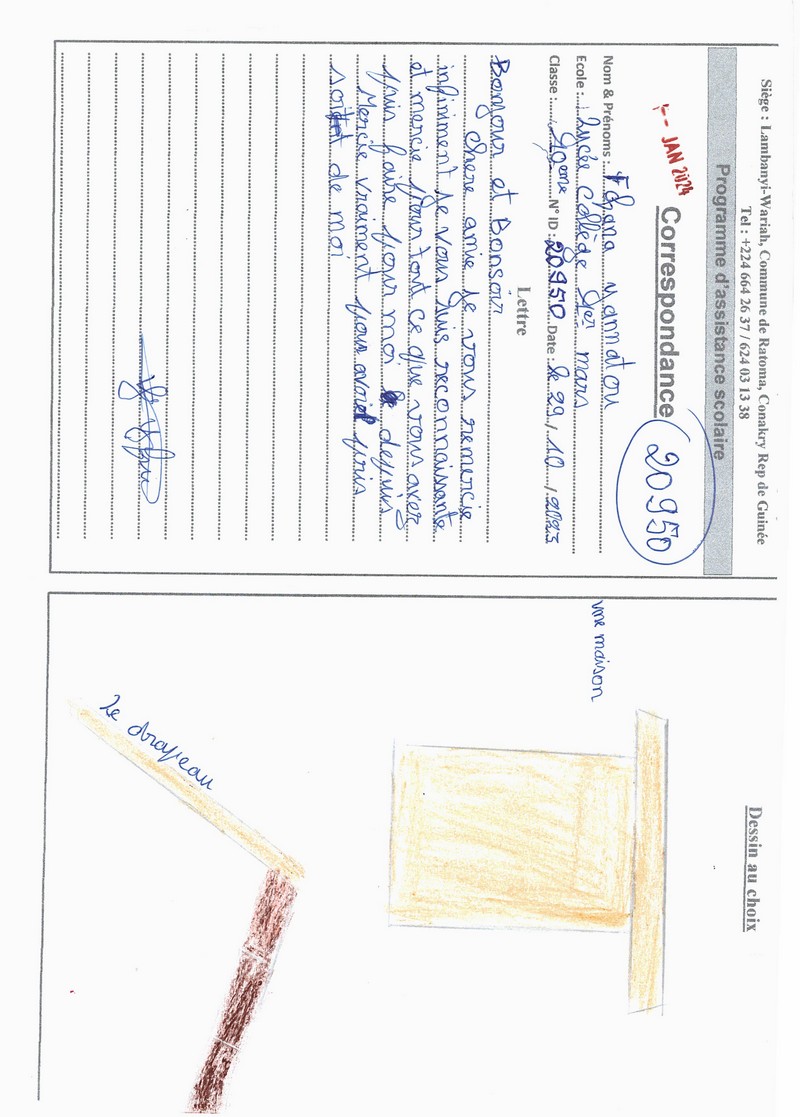 Siège : Lambanyi-Wariah, Commune de Ratoma, Conakry Rep de Guinée
Tel : +224 664 26 37 / 624 03 13 38
Programme d'assistance scolaire
JAN 2024
Correspondance
20950
Nom & Prénoms : Fofana Mannatou
Ecole : Lycée Collège 1er mars
Classe : 10eme N° ID : 20950 Date : le 29 / 10 / 2023
Lettre
Bonjour et Bonsoir
chere amie je vous remercie
infiniment je vous suis reconnaissante
et mercie pour tout ce que vous avez
fuis faire pour moi depuis
Mercie vraiment pour avoir pris
soit de moi
Dessin au choix
une maison
le drapeau